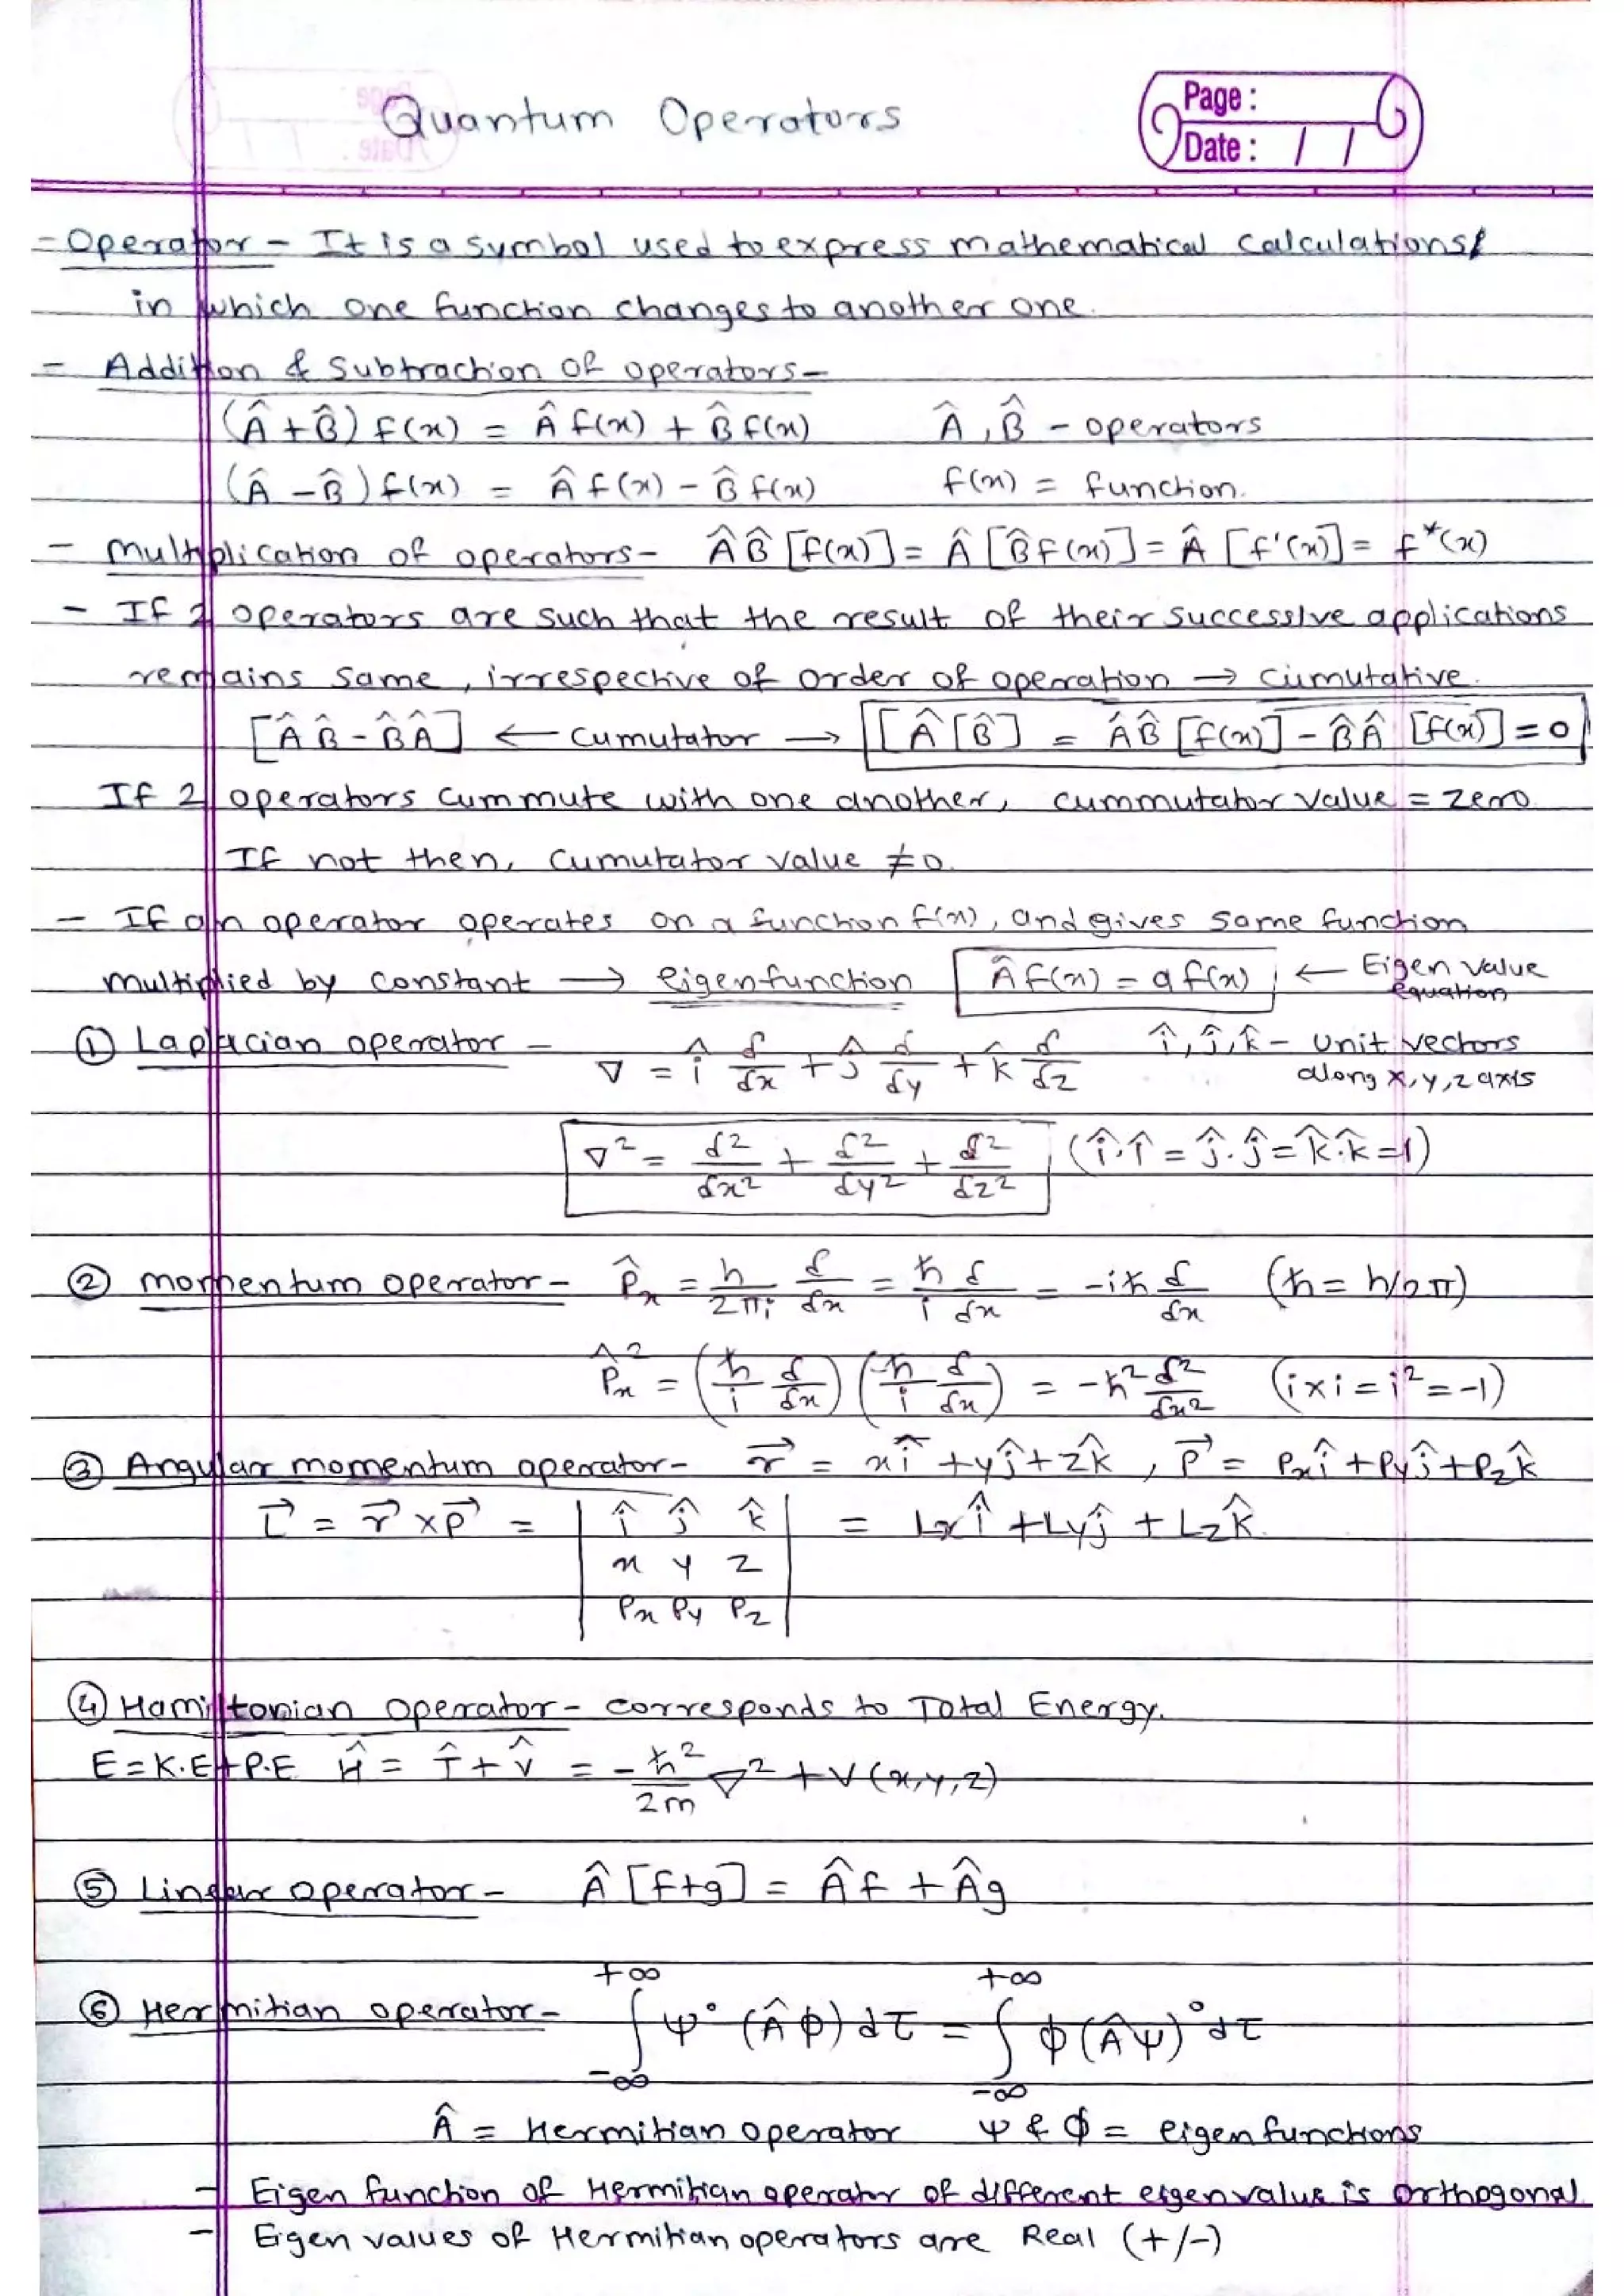 Quantum Operators
Page :
Date : / /
- Operator - It is a symbol used to express mathematical calculations
in which one function changes to another one.
- Addition & Subtraction of operators -
(Â + B̂) f(x) = Â f(x) + B̂ f(x)   Â , B̂ - operators
(Â - B̂) f(x) = Â f(x) - B̂ f(x)   f(x) = function.
- Multiplication of operators - Â B̂ [f(x)] = Â [B̂ f(x)] = Â [f'(x)] = f*(x)
- If 2 operators are such that the result of their successive applications
remains same, irrespective of order of operation → cumutative.
[Â B̂ - B̂ Â] ← cumutator → [Â [B̂] = Â B̂ [f(x)] - B̂ Â [f(x)] = 0
If 2 operators cummute with one another, cummutator value = zero
If not then, cumutator value ≠ 0.
- If an operator operates on a function f(x), and gives same function
multiplied by constant → eigenfunction   Â f(x) = a f(x) ← Eigen value equation
① Laplacian operator - ∇ = î δ/δx + ĵ δ/δy + k̂ δ/δz   î, ĵ, k̂ - unit vectors along x, y, z axis
∇² = δ²/δx² + δ²/δy² + δ²/δz²   (î.î = ĵ.ĵ = k̂.k̂ = 1)
② Momentum operator - P̂x = h/2πi δ/δx = ħ/i δ/δx = -iħ δ/δx   (ħ = h/2π)
P̂x² = (ħ/i δ/δx) (ħ/i δ/δx) = -ħ² δ²/δx²   (i x i = i² = -1)
③ Angular momentum operator - r⃗ = xî + yĵ + zk̂ , P⃗ = Pxî + Pyĵ + Pzk̂
L⃗ = r⃗ x P⃗ = | î ĵ k̂ | = Lxî + Lyĵ + Lzk̂
x y z
Px Py Pz
④ Hamiltonian Operator - corresponds to Total Energy.
E = K.E + P.E   Ĥ = T̂ + V̂ = -ħ²/2m ∇² + V(x,y,z)
⑤ Linear operator - Â [f+g] = Âf + Âg
⑥ Hermitian operator - ∫₋∞⁺∞ ψ° (Âφ) dτ = ∫₋∞⁺∞ φ (Âψ)° dτ
Â = Hermitian operator   ψ & φ = eigenfunctions
- Eigen function of Hermitian operator of different eigenvalue is orthogonal
- Eigen values of Hermitian operators are Real (+/-)